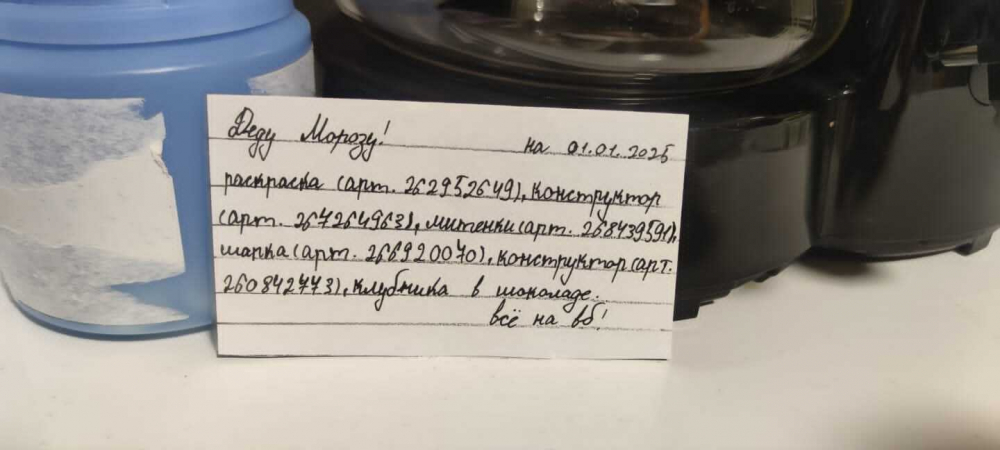 Деду Морозу!
на 01.01.2025
раскраска (арт. 262952649), конструктор
(арт. 267264963), митенки (арт. 268439591),
шапка (арт. 266920070), конструктор (арт.
260842773), клубника в шоколаде.
всё на вб!